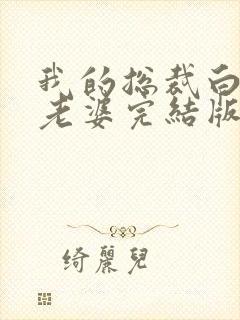 我的総裁白
老婆完結版
綺麗兒